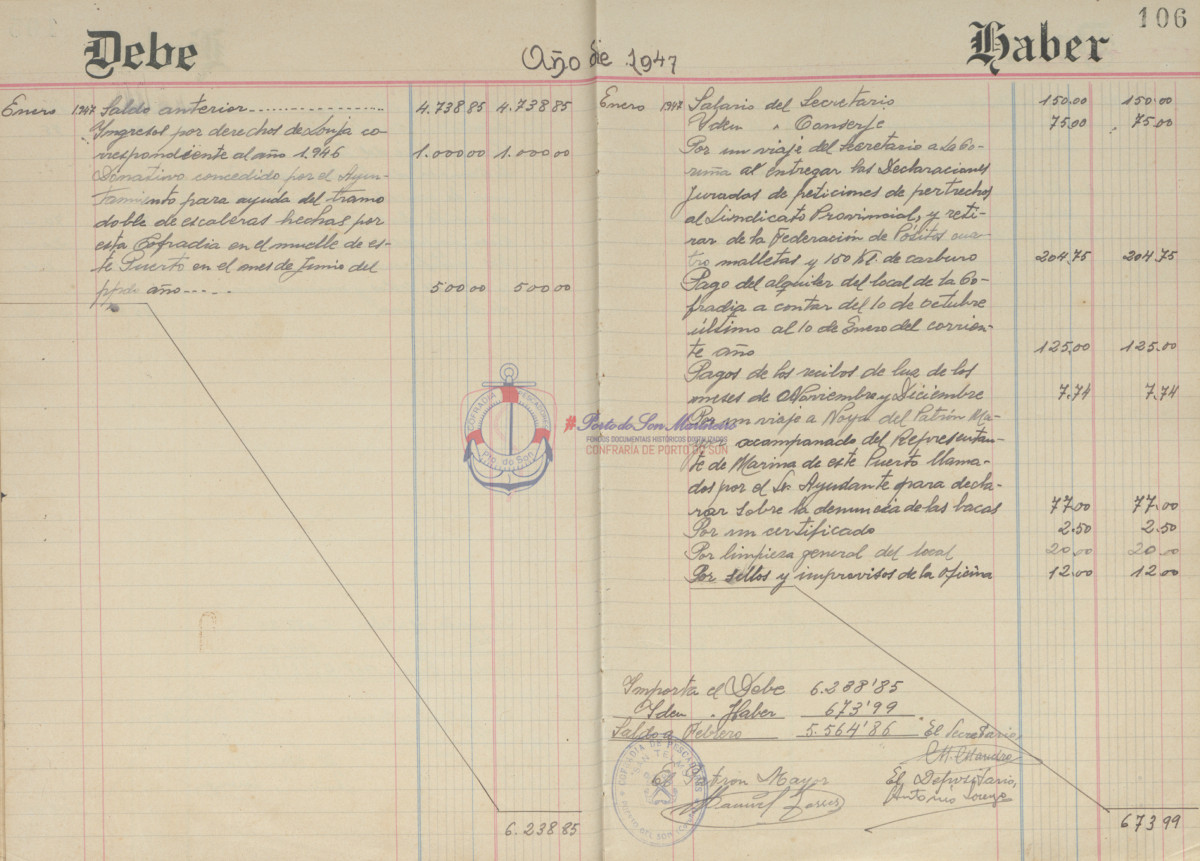 106
Debe
Año de 1947
Haber
Enero 1947 Saldo anterior.................. 4.738 85 4.738 85
Ingresos por derechos de Lonja co-
rrespondiente al año 1.946 1.000 00 1.000 00
Donativo concedido por el Ayun-
tamiento para ayuda del tramo
doble de escaleras hechas por
esta Cofradia en el muelle de es-
te Puerto en el mes de Junio del
ppdo año----- 500 00 500 00
6.238 85
Enero 1947 Salario del Secretario 150.00 150.00
Idem " Conserje 75.00 75.00
Por un viaje del secretario a la Co-
ruña al entregar las Declaraciones
Juradas de peticiones de pertrechos
al Sindicato Provincial, y reti-
rar de la Federación de Pósitos cua-
tro malletas y 150 Kl. de carburo 204.75 204.75
Pago del alquiler del local de la Co-
fradia a contar del 10 de octubre
último al 10 de Enero del corrien-
te año 125.00 125.00
Pagos de los recibos de luz de los
meses de Noviembre y Diciembre 7.74 7.74
Por un viaje a Noya del Patrón Ma-
acompanado del Representan-
te de Marina de este Puerto llama-
dos por el Sr. Ayudante para decla-
rar sobre la denuncia de las bacas 77.00 77.00
Por un certificado 2.50 2.50
Por limpieza general del local 20.00 20.00
Por sellos y imprevisos de la oficina 12.00 12.00
Importa el Debe 6.238'85
Idem " Haber 673'99
Saldo a Febrero 5.564'86
El Secretario,
El Patron Mayor
El Depositario,
Antonio Lorenzo
673 99
COFRADIA DE PESCADORES
Pto. do Son
#Porto do Son Mariñeiro
FONDOS DOCUMENTAIS HISTÓRICOS DIXITALIZADOS
CONFRARIA DE PORTO DO SON
COFRADIA DE PESCADORES
"SAN TELMO"
PUERTO DEL SON